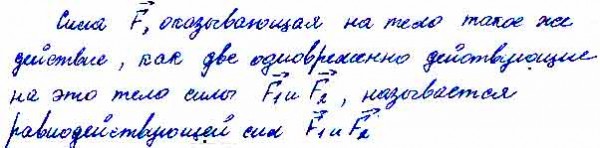 Сила F⃗, оказывающая на тело такое же
действие, как две одновременно действующие
на это тело силы F⃗1 и F⃗2, называется
равнодействующей сил F⃗1 и F⃗2